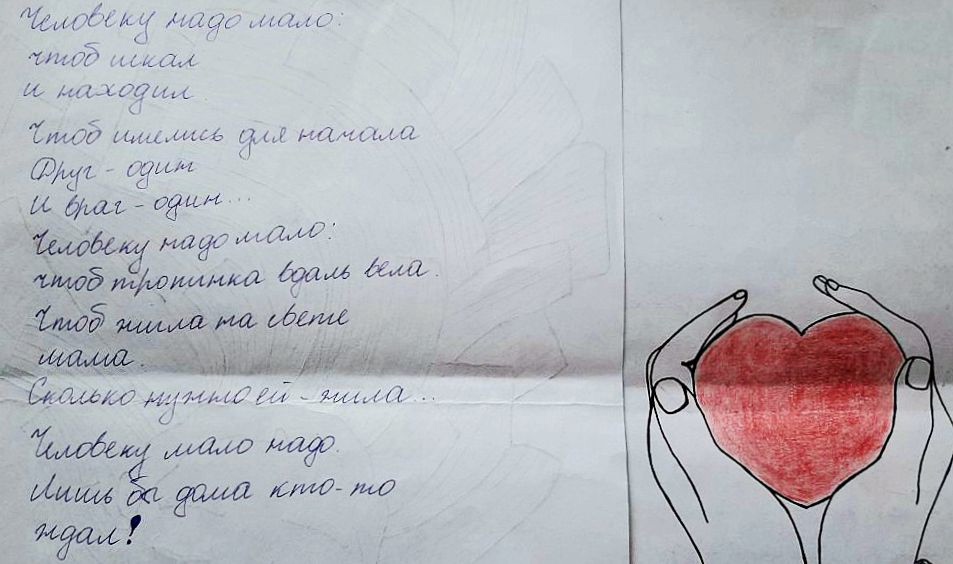 Человеку надо мало:
чтоб искал
и находил
Чтоб имелись для начала
Друг - один
И враг - один...
Человеку надо мало:
чтоб тропинка вдаль вела.
Чтоб жила на свете
мама.
Сколько нужно ей - жила...
Человеку мало надо.
Лишь бы дома кто-то
ждал!